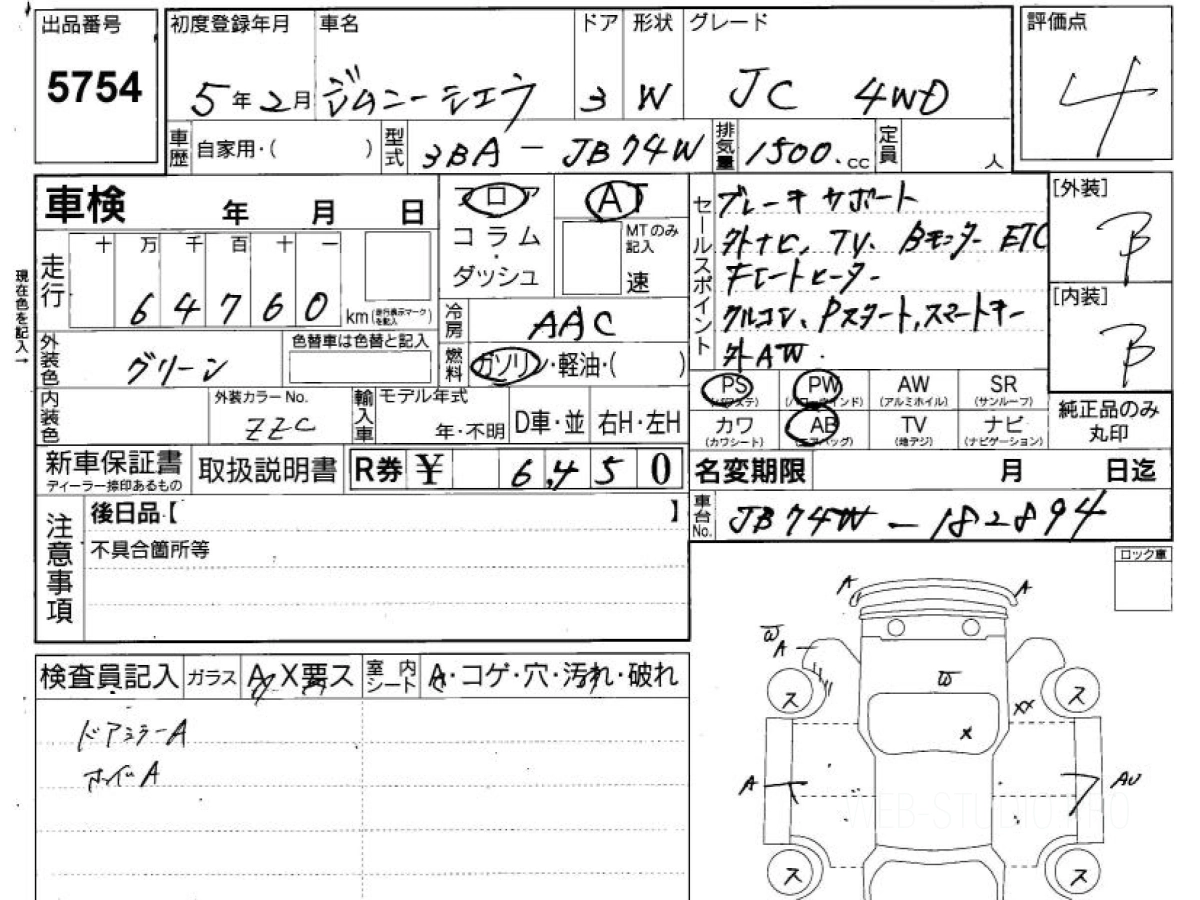 出品番号 初度登録年月 車名 ドア 形状 グレード 評価点
5754 5年2月 ジムニーシエラ 3 W JC 4WD 4
車歴 自家用・( ) 型式 3BA-JB74W 排気量 1500.cc 定員 人
車検 年 月 日 フロア AT セールスポイント ブレーキサポート [外装]
十 万 千 百 十 一 コラム・ MTのみ記入 外ナビ、TV、Bモニター ETC B
現在色を記入→ 走行 64760 km(走行表示マークを記入) ダッシュ 速 チートヒーター [内装]
冷房 AAC クルコン、Pスタート,スマートキー B
外装色 グリーン 色替車は色替と記入 燃料 ガソリン・軽油・( ) 外AW.
PS(パワステ) PW(パワーウインド) AW(アルミホイル) SR(サンルーフ) 純正品のみ丸印
内装色 外装カラーNo. ZZC 輸入車 モデル年式 年・不明 D車・並 右H・左H カワ(カワシート) AB(エアバッグ) TV(地デジ) ナビ(ナビゲーション)
新車保証書 ディーラー捺印あるもの 取扱説明書 R券 ¥ 6,450 名変期限 月 日迄
注意事項 後日品【 】 車台No. JB74W-182894
不具合箇所等 ロック車
A A
W A
検査員記入 ガラス A X要ス 室内シート A・コゲ・穴・汚れ・破れ W
ス XX ス
ドアミラーA X
ホイルA
A AU
WEB-STUDIO.PRO
ス ス